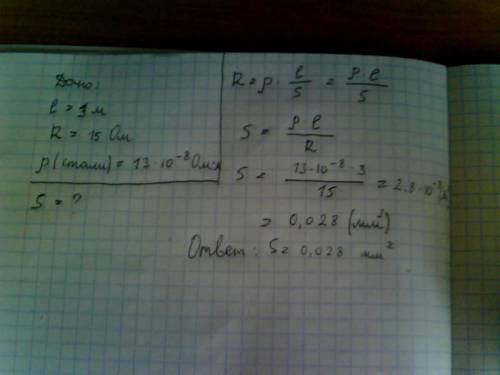 Дано:
l = 3 м
R = 15 Ом
ρ(стали) = 13·10⁻⁸ Ом·м
S = ?
R = ρ · l/S = ρ·l/S
S = ρ·l/R
S = 13·10⁻⁸·3/15 = 2.8·10⁻⁸
= 0,028 (мм²)
Ответ: S = 0,028 мм²